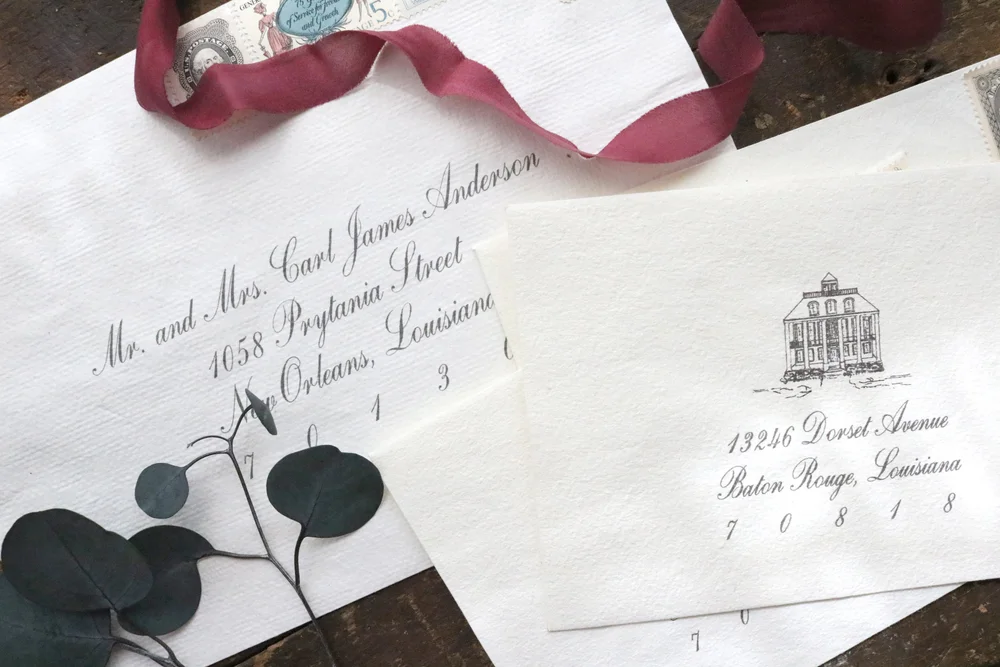 75
of Service for Freedom
and Growth
U.S. POSTAGE
5
Mr. and Mrs. Carl James Anderson
1058 Prytania Street
New Orleans, Louisiana
7 0 1 3 0
13246 Dorset Avenue
Baton Rouge, Louisiana
7 0 8 1 8
7 0